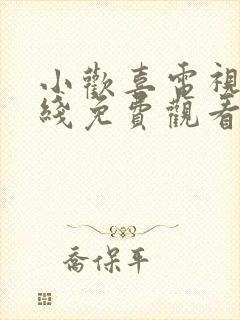 小歡喜電視
綫免費觀看
喬保平